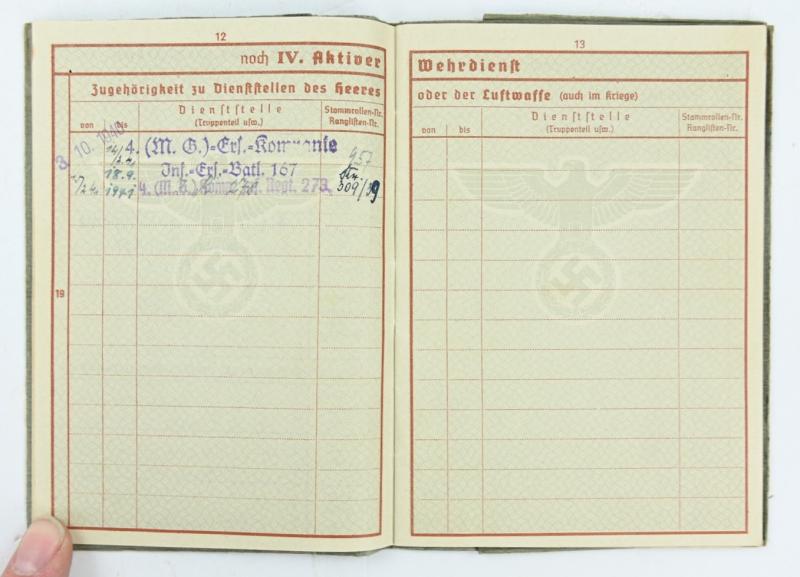 12
noch IV. Aktiver
Zugehörigkeit zu Dienststellen des Heeres
von
bis
Dienststelle
(Truppenteil usw.)
Stammrollen-Nr.
Ranglisten-Nr.
3. 10. 1940
4. (M. G.)-Ers.-Kompanie
Inf.-Ers.-Batl. 167
457
18.9.
1941
4. (M. G.) Komp. Inf. Regt. 273
309/39
19
13
Wehrdienst
oder der Luftwaffe (auch im Kriege)
von
bis
Dienststelle
(Truppenteil usw.)
Stammrollen-Nr.
Ranglisten-Nr.